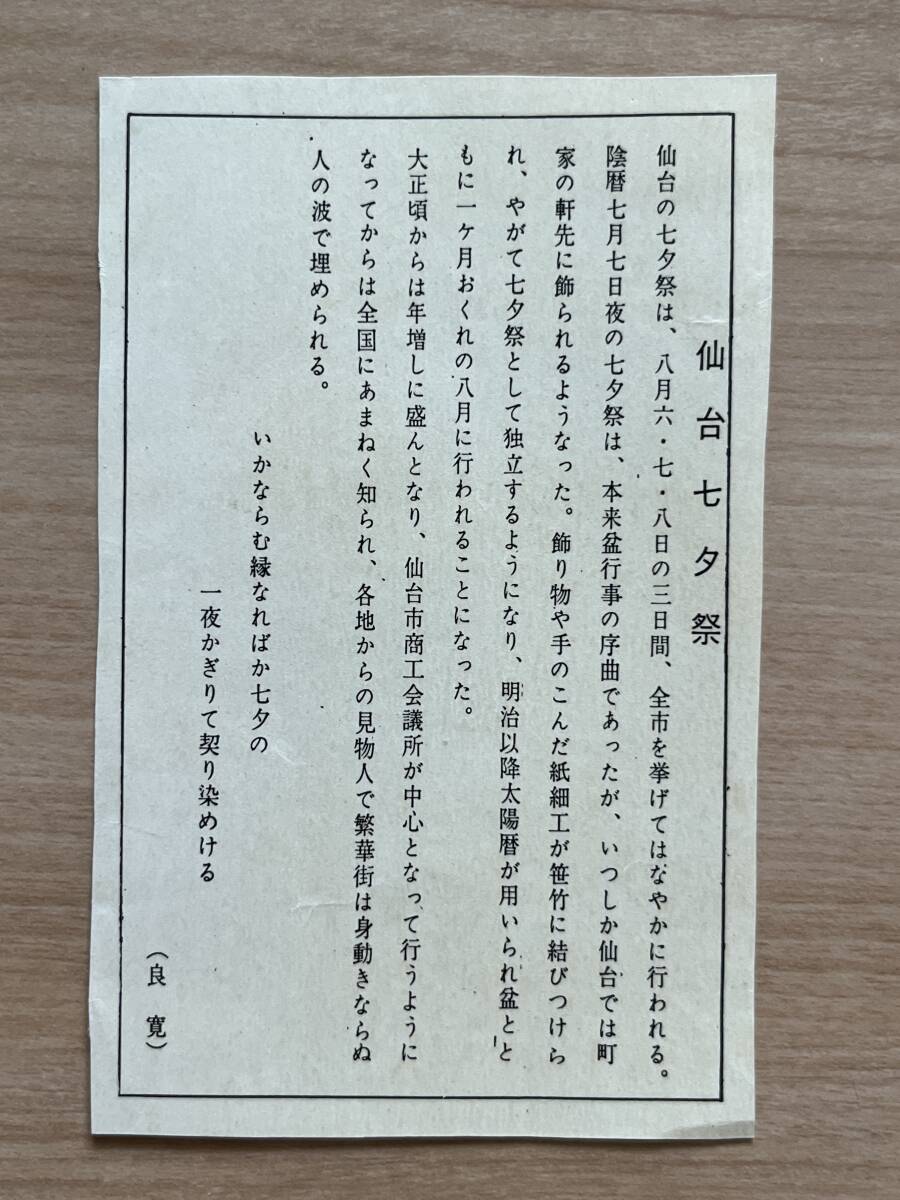 仙台七夕祭
仙台の七夕祭は、八月六・七・八日の三日間、全市を挙げてはなやかに行われる。
陰暦七月七日夜の七夕祭は、本来盆行事の序曲であったが、いつしか仙台では町
家の軒先に飾られるようなった。飾り物や手のこんだ紙細工が笹竹に結びつけら
れ、やがて七夕祭として独立するようになり、明治以降太陽暦が用いられ盆とと
もに一ヶ月おくれの八月に行われることになった。
大正頃からは年増しに盛んとなり、仙台市商工会議所が中心となって行うように
なってからは全国にあまねく知られ、各地からの見物人で繁華街は身動きならぬ
人の波で埋められる。
いかならむ縁なればか七夕の
一夜かぎりて契り染めける
（良寛）